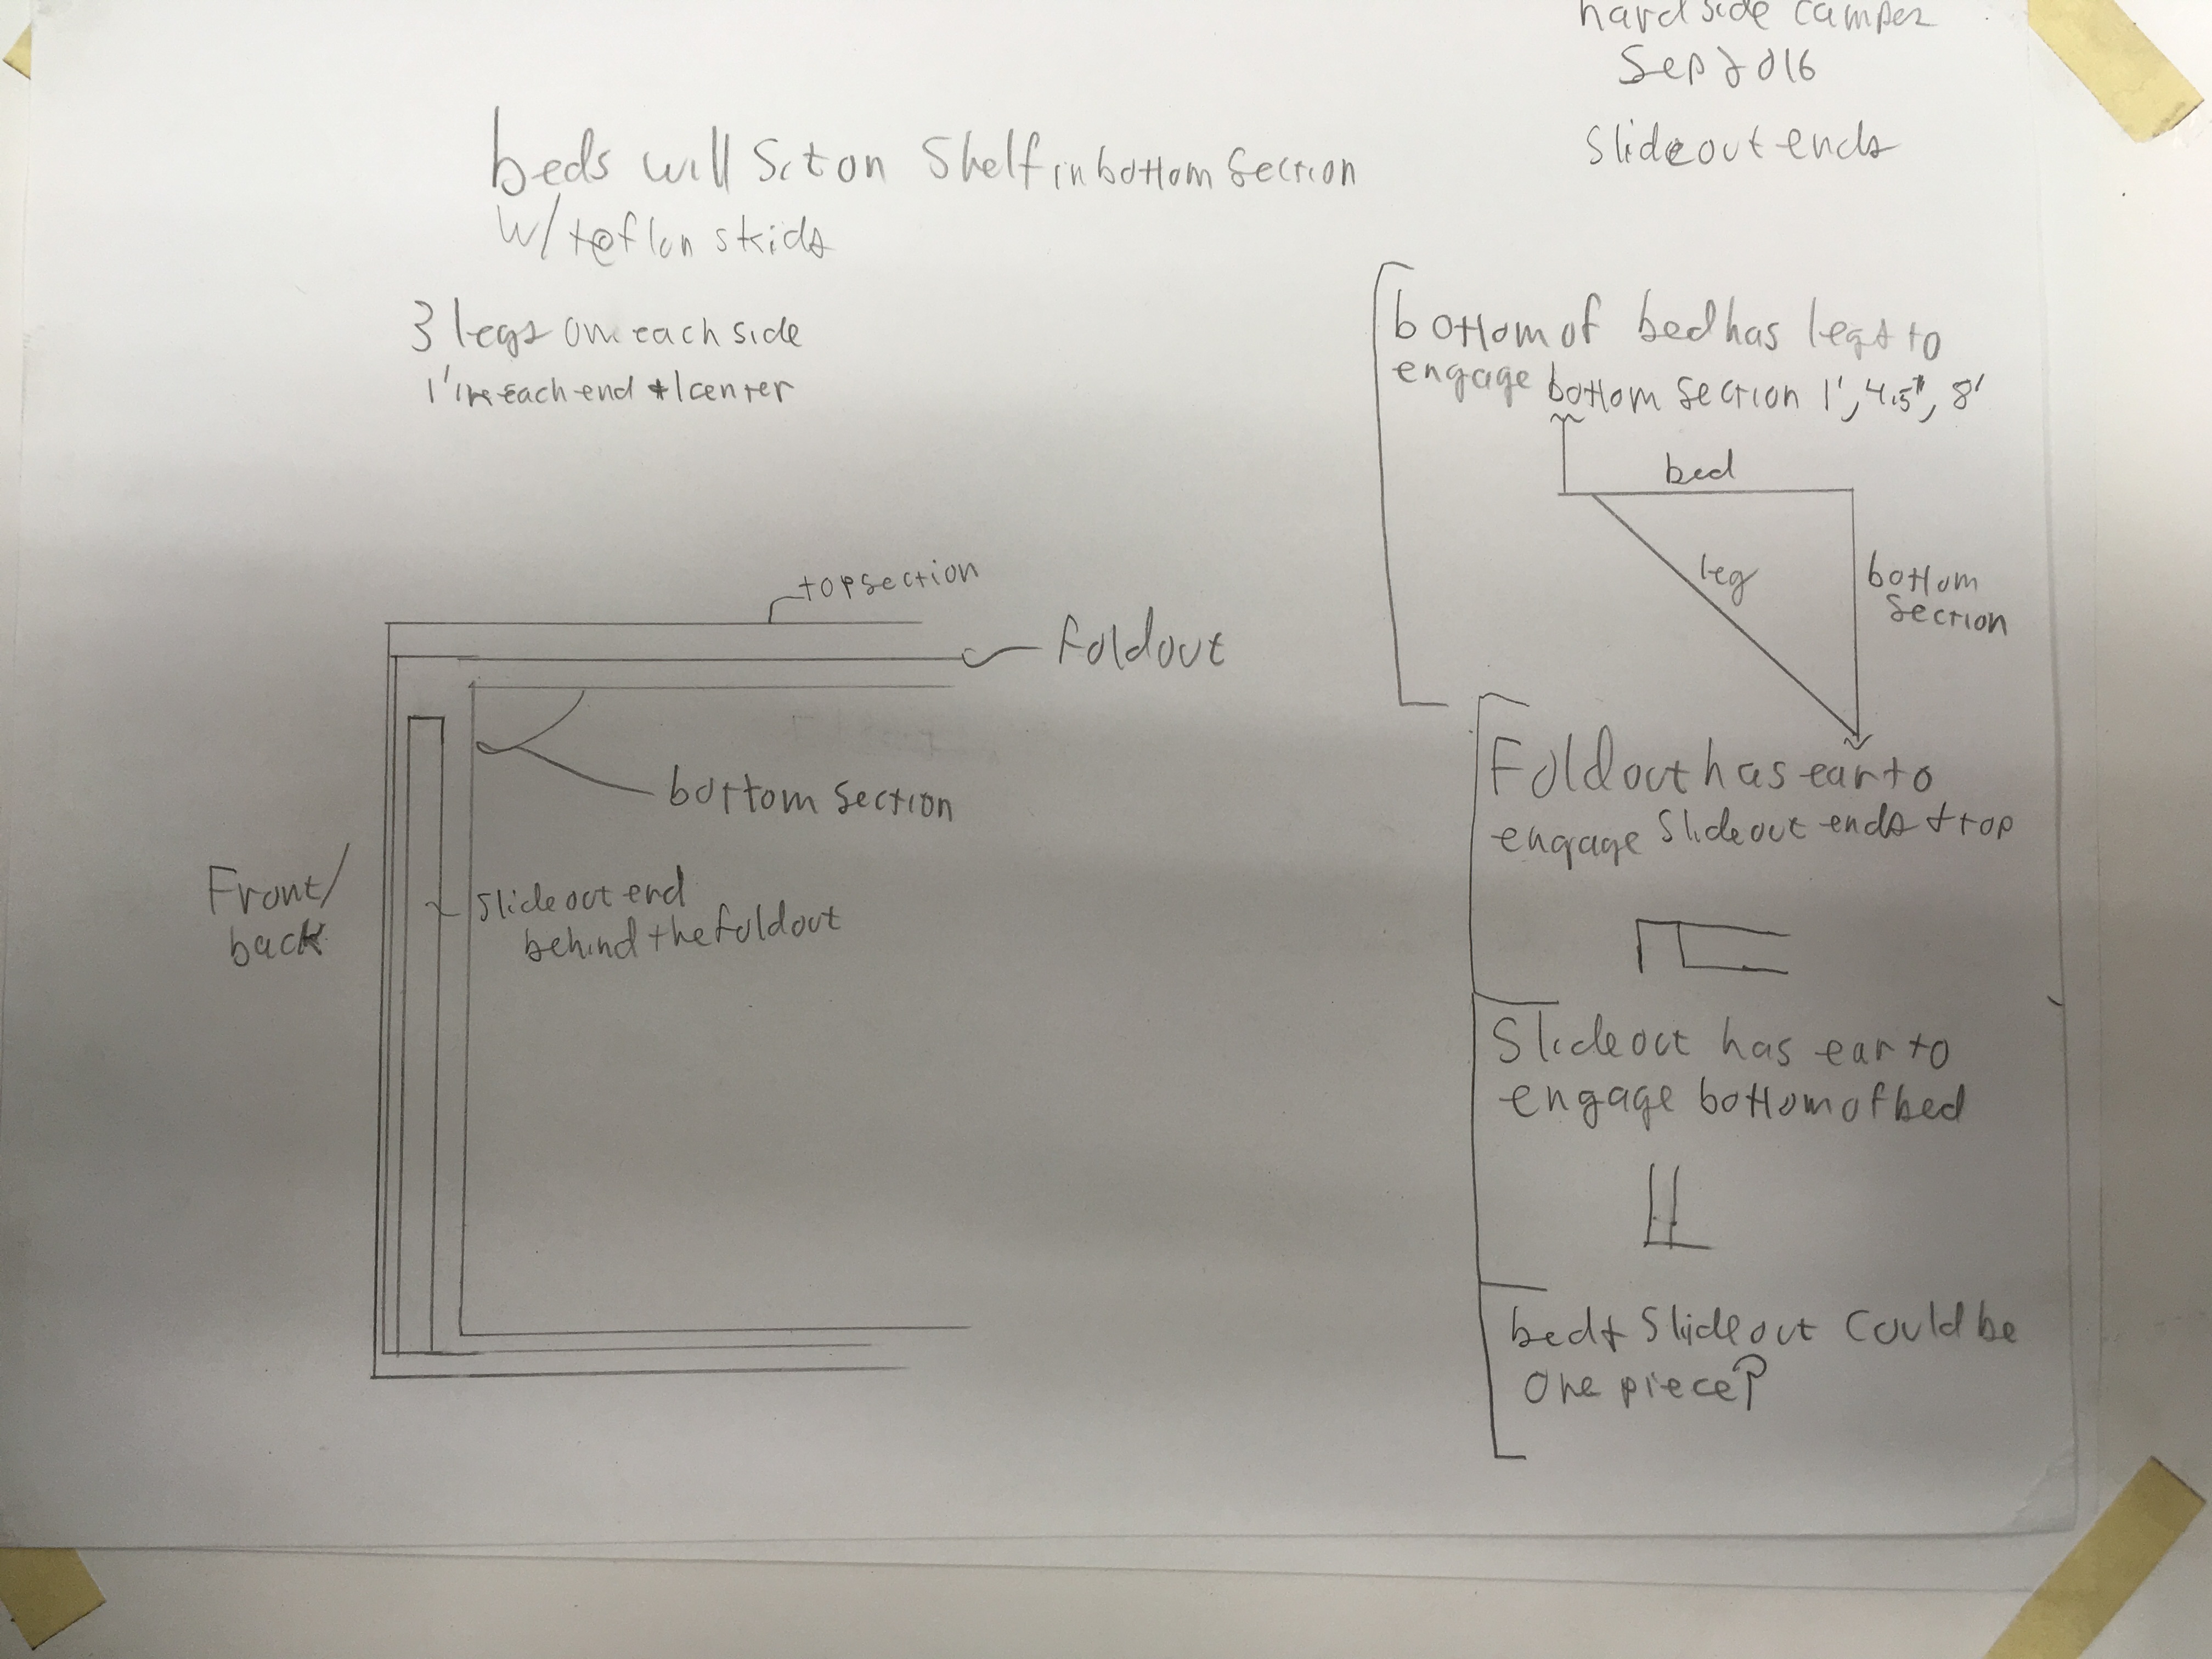 hard side camper
Sep 2016
Slideout ends
beds will sit on shelf in bottom section
w/ teflon skids
3 legs on each side
1' in each end + 1 center
bottom of bed has legs to
engage bottom section 1', 4.5', 8'
bed
leg
bottom
section
top section
Foldout
bottom section
Front/
back
slideout end
behind the foldout
Foldout has ear to
engage slideout ends + top
Slideout has ear to
engage bottom of bed
bed + slideout could be
one piece?